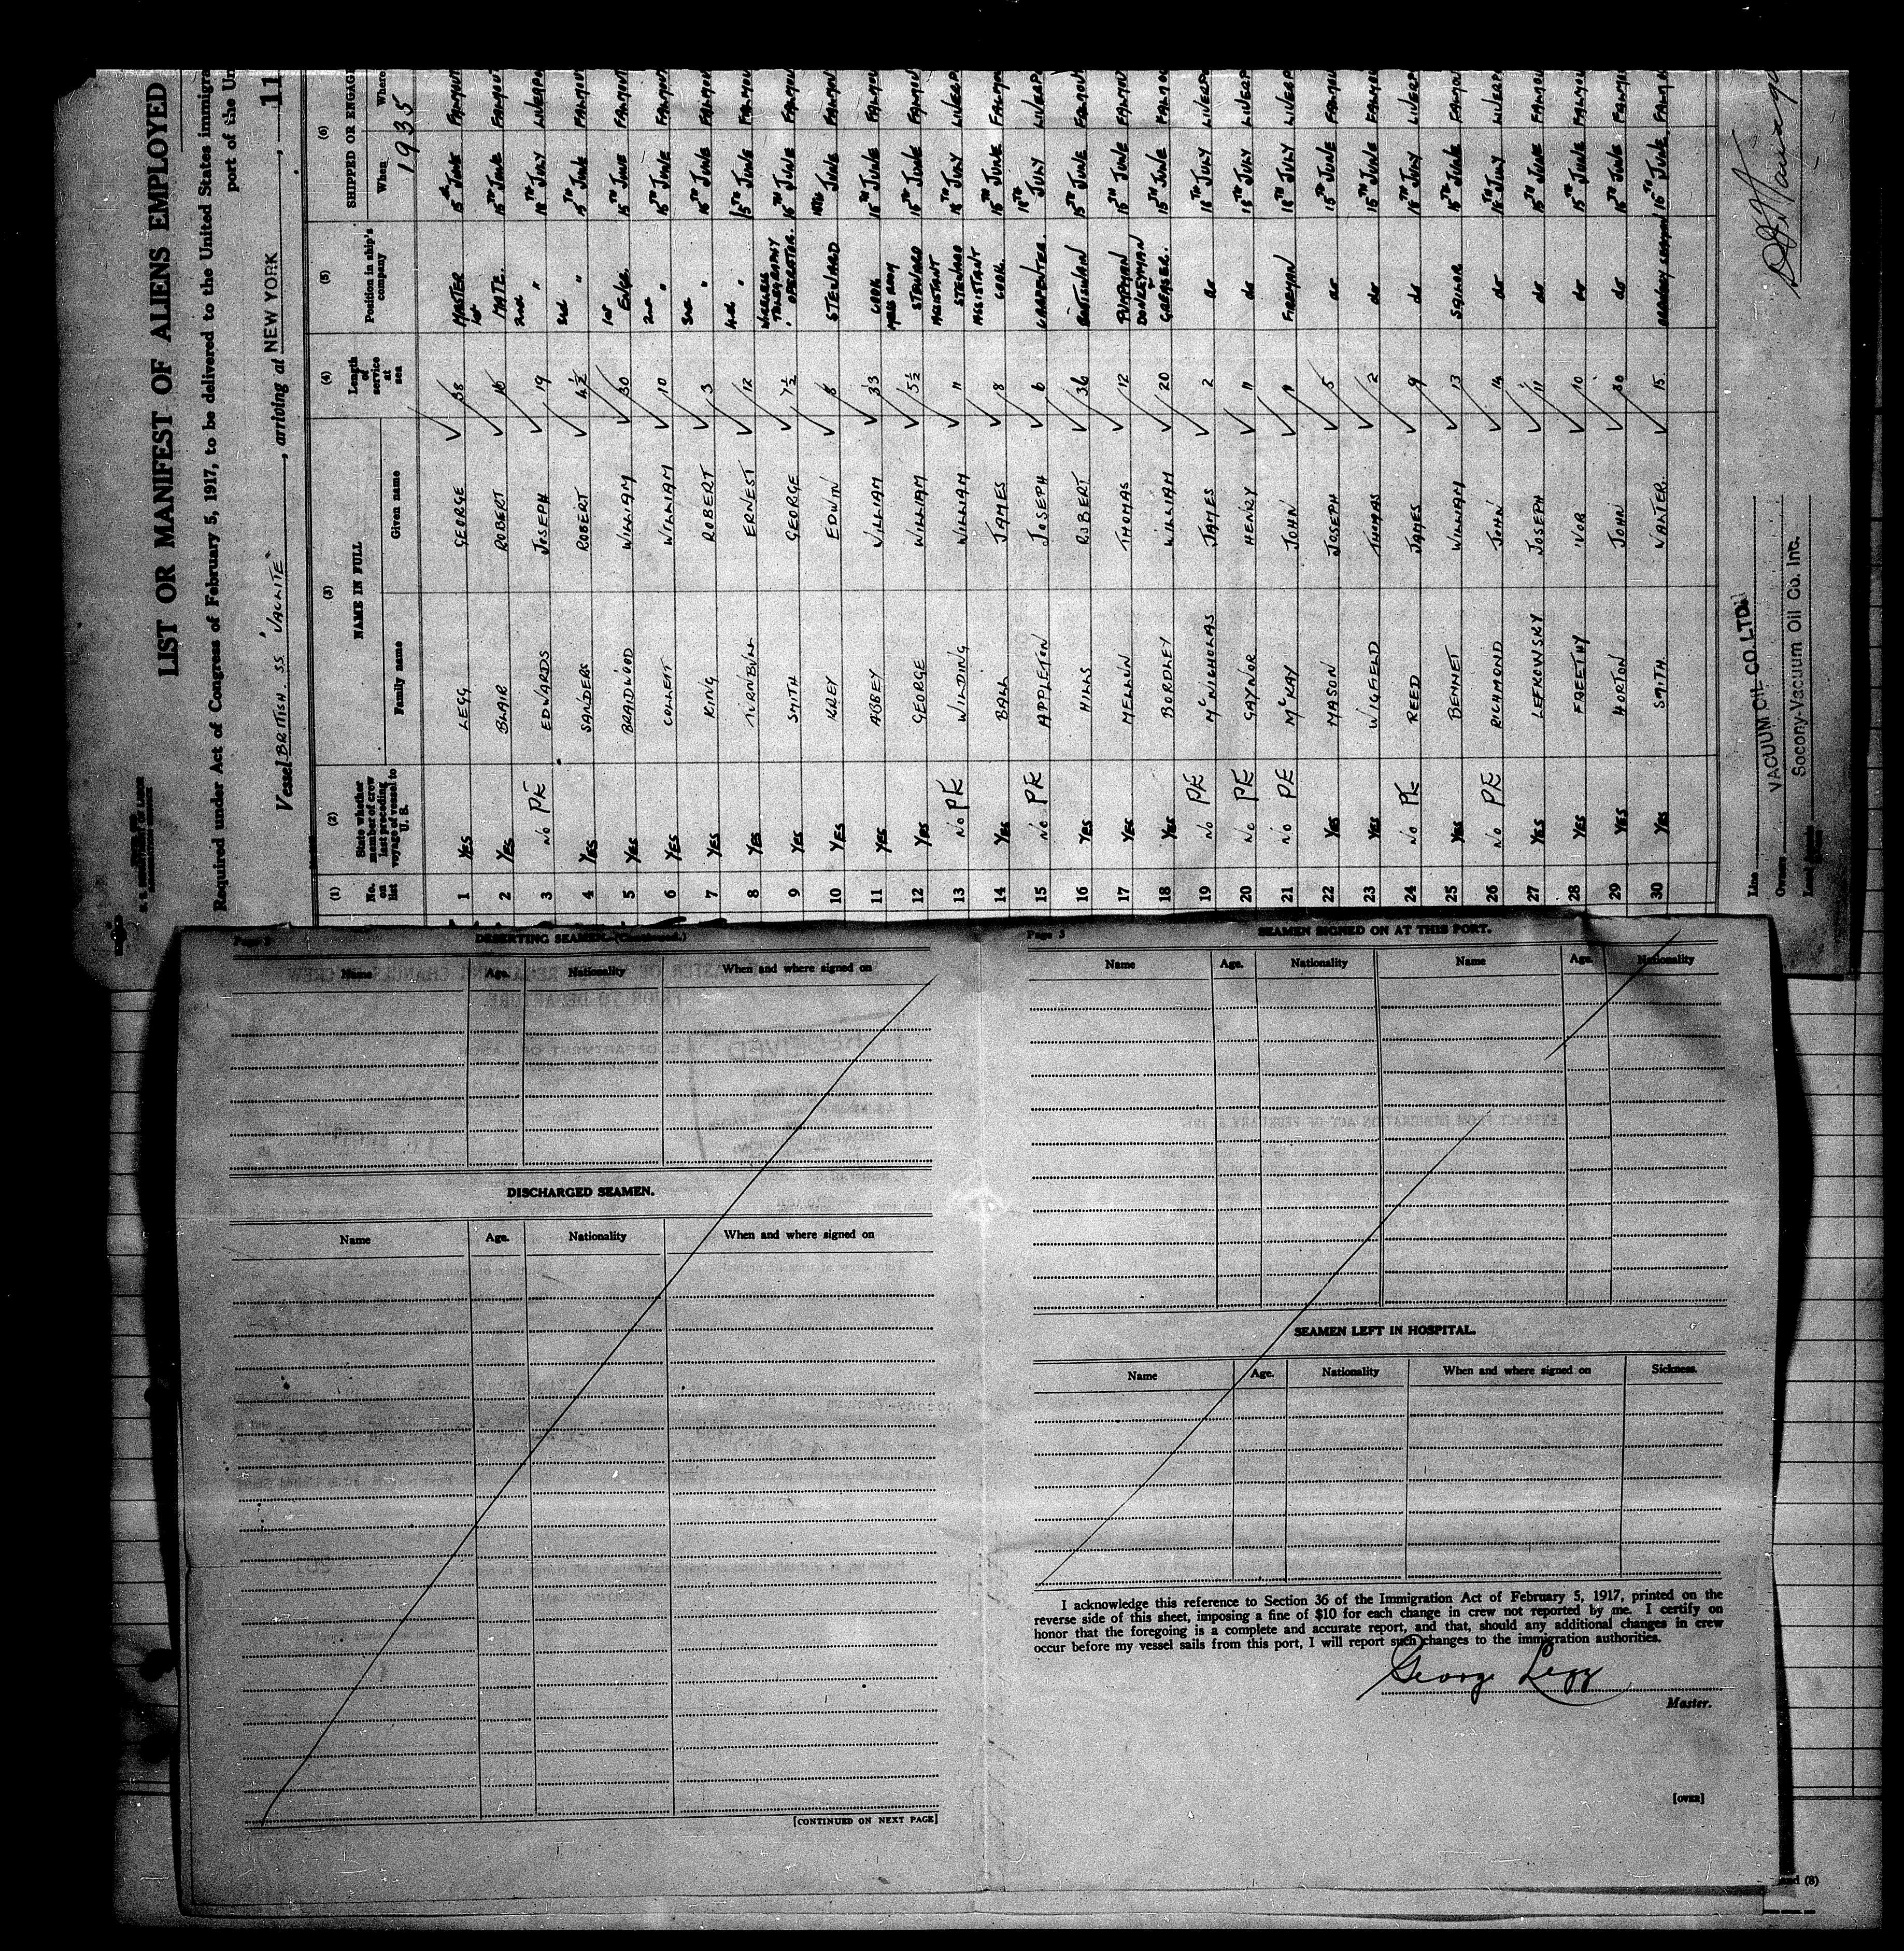 LIST OR MANIFEST OF ALIENS EMPLOYED
Required under Act of Congress of February 5, 1917, to be delivered to the United States immigra
port of the Un
Vessel BRITISH. SS "VACLITE", arriving at NEW YORK, 11
(1) (2) (3) (4) (5) (6)
No. on list
State whether member of crew last preceding voyage of vessel to U. S.
NAME IN FULL
Family name Given name
Length of service at sea
Position in ship's company
SHIPPED OR ENGAG
When Where
1935
1 YES LEGG GEORGE 38 MASTER 15th JUNE FALMOUT
2 YES BLAIR ROBERT 1st MATE. 15TH JUNE FALMOUT
3 NO PE EDWARDS JOSEPH 19 2nd " 18TH JULY LIVERPO
4 YES SANDERS ROBERT 4½ 3rd " 15TH JUNE FALMOUT
5 YES BRAIDWOOD WILLIAM 30 1st ENGR. 15TH JUNE FALMOUT
6 YES COLLETT WILLIAM 10 2nd " 15TH JUNE FALMOU
7 YES KING ROBERT 3 3rd " 15TH JUNE FALMOU
8 YES TURNBULL ERNEST 12 4th " 15TH JUNE FALMOU
9 YES SMITH GEORGE 7½ WIRELESS TELEGRAPHY OPERATOR. 15TH JUNE FALMOU
10 YES KREY EDWIN 8 STEWARD 15TH JUNE FALMOU
11 YES ABBEY WILLIAM 33 COOK 15TH JUNE FALMOU
12 YES GEORGE WILLIAM 5½ MESS ROOM STEWARD 15TH JUNE FALMOU
13 NO PE WILDING WILLIAM 11 ASSISTANT STEWARD 18TH JULY LIVERP
14 YES BALL JAMES 8 ASSISTANT COOK. 15TH JUNE FALMOU
15 NO PE APPLETON JOSEPH 6 CARPENTER. 18TH JULY LIVERP
16 YES HILLS ROBERT 36 BOATSWAIN 15TH JUNE FALMOU
17 YES MELLUN THOMAS 12 PUMPMAN 15TH JUNE FALMOU
18 YES BORDLEY WILLIAM 20 DONKEYMAN & GREASER. 15TH JUNE FALMOU
19 NO PE McNICHOLAS JAMES 2 do 18TH JULY LIVERP
20 NO PE GAYNOR HENRY 11 do 18TH JULY LIVERP
21 NO PE McKAY JOHN 9 FIREMAN 18TH JULY LIVERP
22 YES MASON JOSEPH 5 do 15TH JUNE FALMOU
23 YES WIGFIELD THOMAS 2 do 15TH JUNE FALMOU
24 NO PE REED JAMES 9 do 18TH JULY LIVERP
25 YES BENNET WILLIAM 13 SAILOR 15TH JUNE FALMOU
26 NO PE RICHMOND JOHN 14 do 18TH JULY LIVERP
27 YES LEFKOWSKY JOSEPH 11 do 15TH JUNE FALMOU
28 YES FREETHY IVOR 10 do 15TH JUNE FALMOU
29 YES HORTON JOHN 30 do 15TH JUNE FALMO
30 YES SMITH. WALTER. 15. ORDINARY SEAMAN 15TH JUNE. FALM
Line VACUUM OIL CO. LTD.
Owners Socony-Vacuum Oil Co. Inc.
DESERTING SEAMEN.—(Continued.)
Name Age. Nationality When and where signed on
DISCHARGED SEAMEN.
Name Age. Nationality When and where signed on
[CONTINUED ON NEXT PAGE]
Page 3
SEAMEN SIGNED ON AT THIS PORT.
Name Age. Nationality Name Age. Nationality
SEAMEN LEFT IN HOSPITAL.
Name Age. Nationality When and where signed on Sickness.
I acknowledge this reference to Section 36 of the Immigration Act of February 5, 1917, printed on the
reverse side of this sheet, imposing a fine of $10 for each change in crew not reported by me. I certify on
honor that the foregoing is a complete and accurate report, and that, should any additional changes in crew
occur before my vessel sails from this port, I will report such changes to the immigration authorities.
George Legg
Master.
[OVER]
and (8)